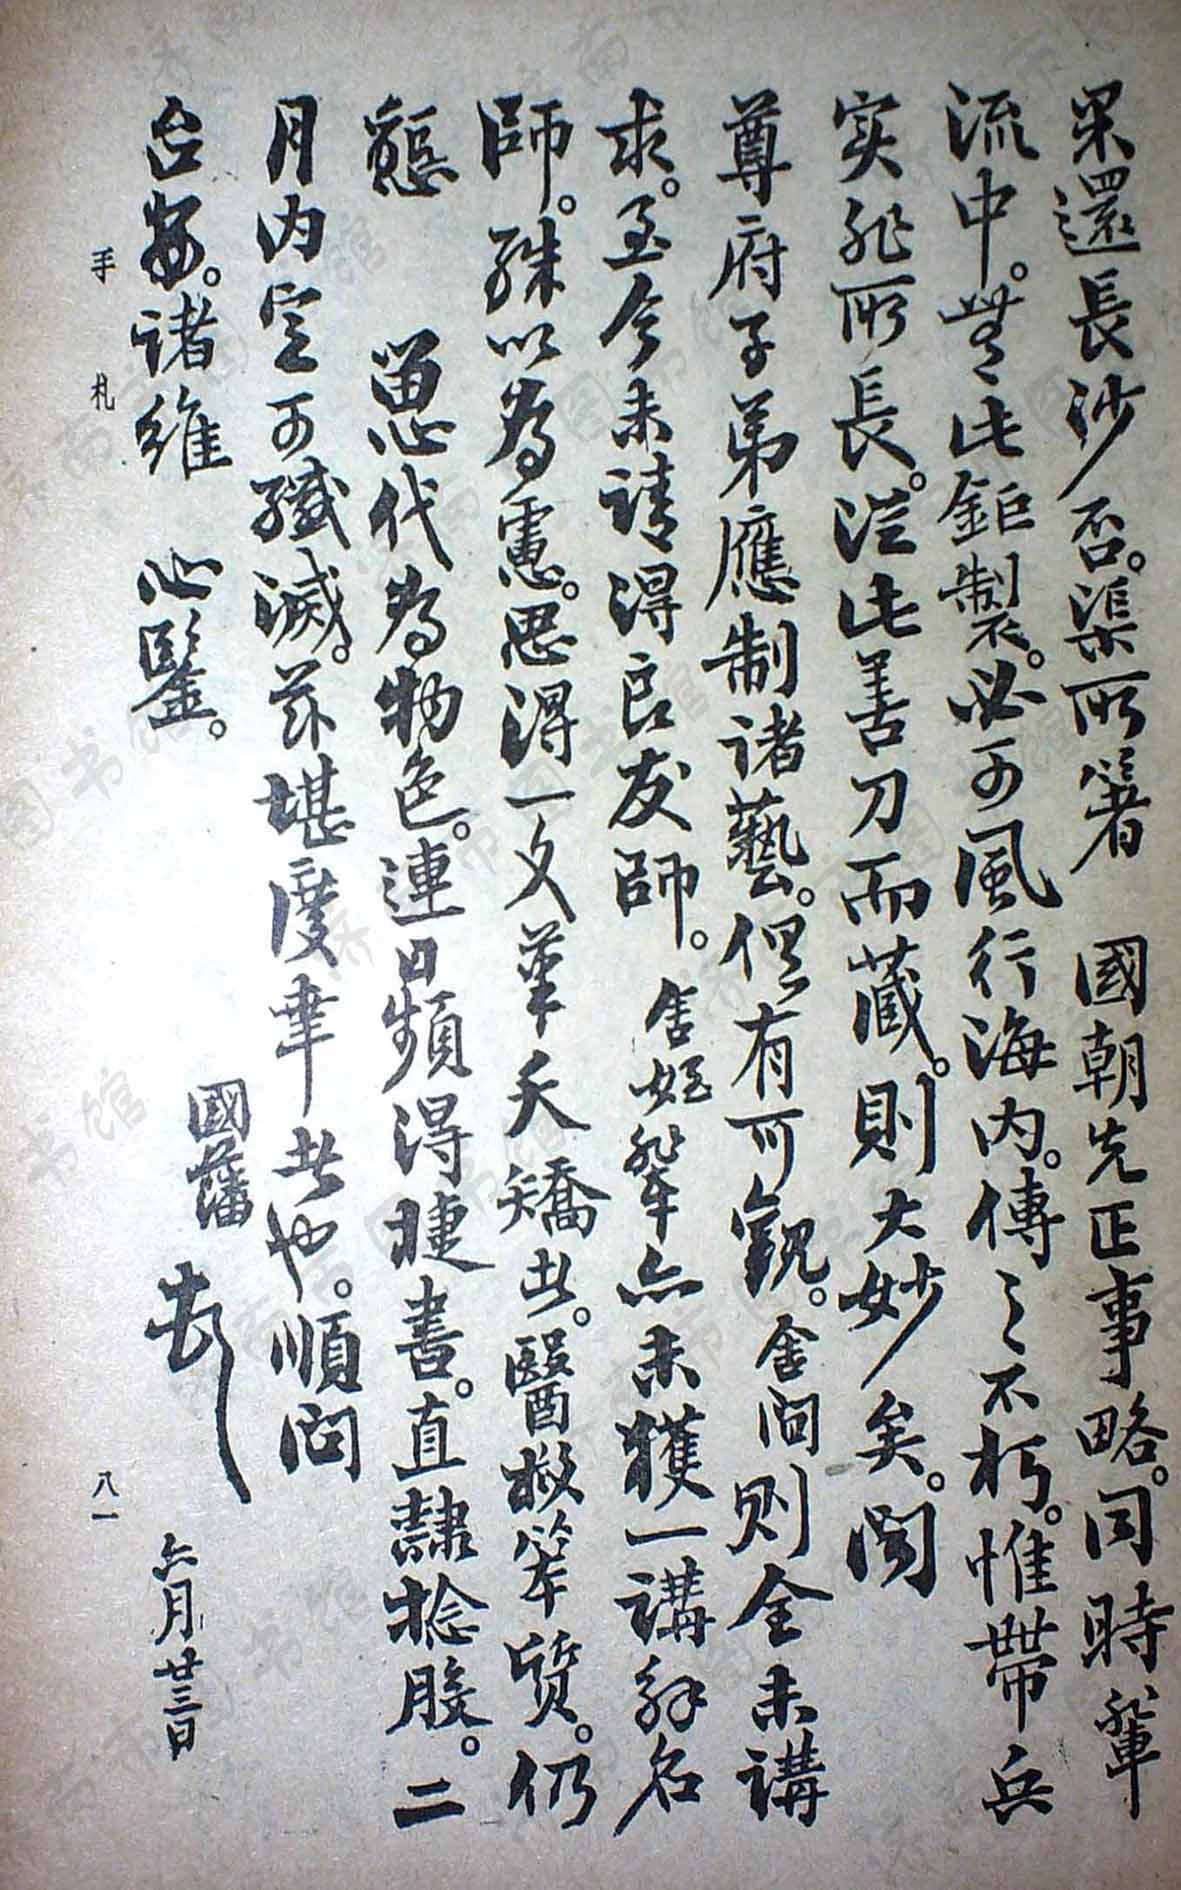 果還長沙否。渠所箸　國朝先正事略。同時輩
流中。無此鉅製。必可風行海內。傳之不朽。惟帶兵
实非所長。從此善刀而藏。則大妙矣。闻
尊府子弟應制諸藝。俱有可觀。舍间则全未講
求。至今未請得良友師。舍姪輩亦未獲一講解名
師。殊以為慮。思得一文筆夭矯者。醫救笨質。仍
懇
鼎愚代為物色。連日頻得捷書。直隸捻股。二
月内定可殲滅。兹堪慶幸者也。順问
台安。诸維　心鑒。
國藩
六月廿三日
手札
八一